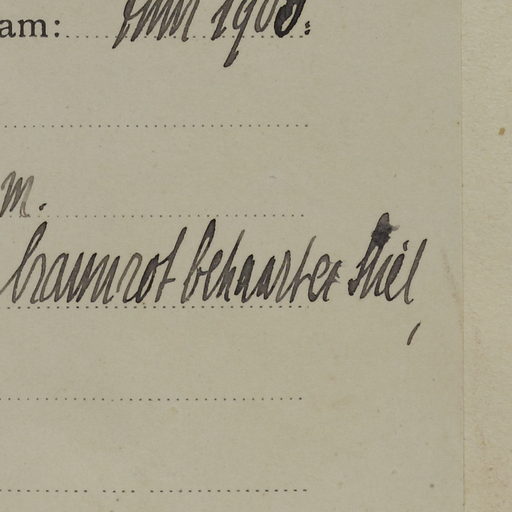 am: Juni 190
m.
braunrot behaarter Stiel,